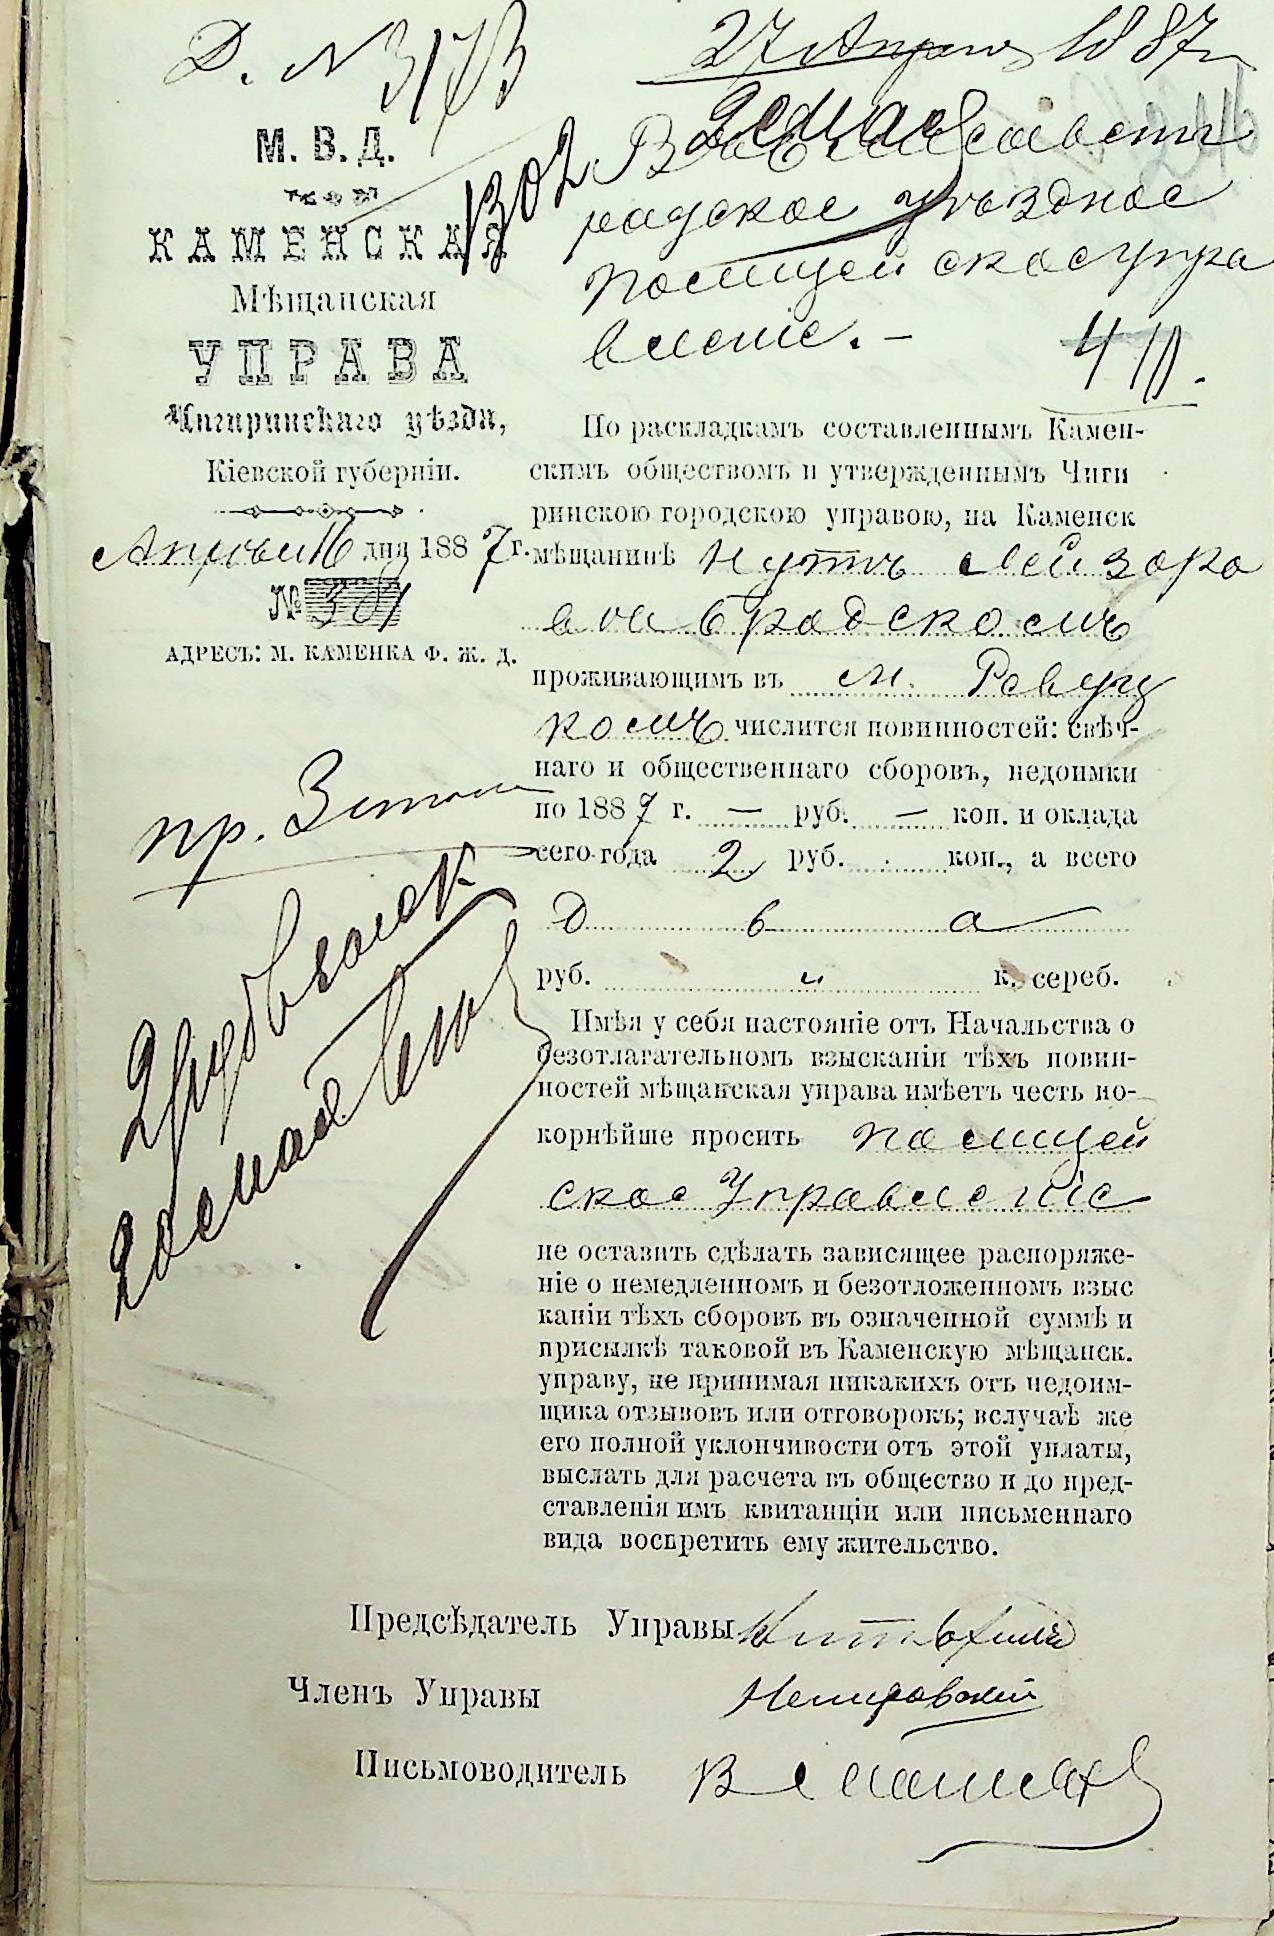 Д. № 3173
27 Апреля 1887 г.
М. В. Д.
КАМЕНСКАЯ
Мѣщанская
УПРАВА
Чигиринскаго уѣзда,
Кіевской губерніи.
Апрѣля 16 дня 1887 г.
№ 381
АДРЕСЪ: М. КАМЕНКА Ф. Ж. Д.
1302
Въ Елисавет
радское уѣздное
полицейское упра
вленіе. –
410.
По раскладкамъ составленнымъ Камен-
скимъ обществомъ и утвержденнымъ Чиги
ринскою городскою управою, на Каменск
мѣщанинѣ Нутъ Лейзоро
вѣ Бродскомъ
проживающимъ въ м. Ровуц
комъ числится повинностей: свѣч-
наго и общественнаго сборовъ, недоимки
по 1887 г. — руб. — коп. и оклада
сего года 2 руб. коп., а всего
Два
руб. „ к. сереб.
Имѣя у себя настояніе отъ Начальства о
безотлагательномъ взысканіи тѣхъ повин-
ностей мѣщанская управа имѣетъ честь по-
корнѣйше просить полицей
ское Управленіе
не оставить сдѣлать зависящее распоряже-
ніе о немедленномъ и безотложенномъ взыс
каніи тѣхъ сборовъ въ означенной суммѣ и
присылкѣ таковой въ Каменскую мѣщанск.
управу, не принимая никакихъ отъ недоим-
щика отзывовъ или отговорокъ; вслучаѣ же
его полной уклончивости отъ этой уплаты,
выслать для расчета въ общество и до пред-
ставленія имъ квитанціи или письменнаго
вида воспретить ему жительство.
пр.
Предсѣдатель Управы
Членъ Управы Немировскій
Письмоводитель